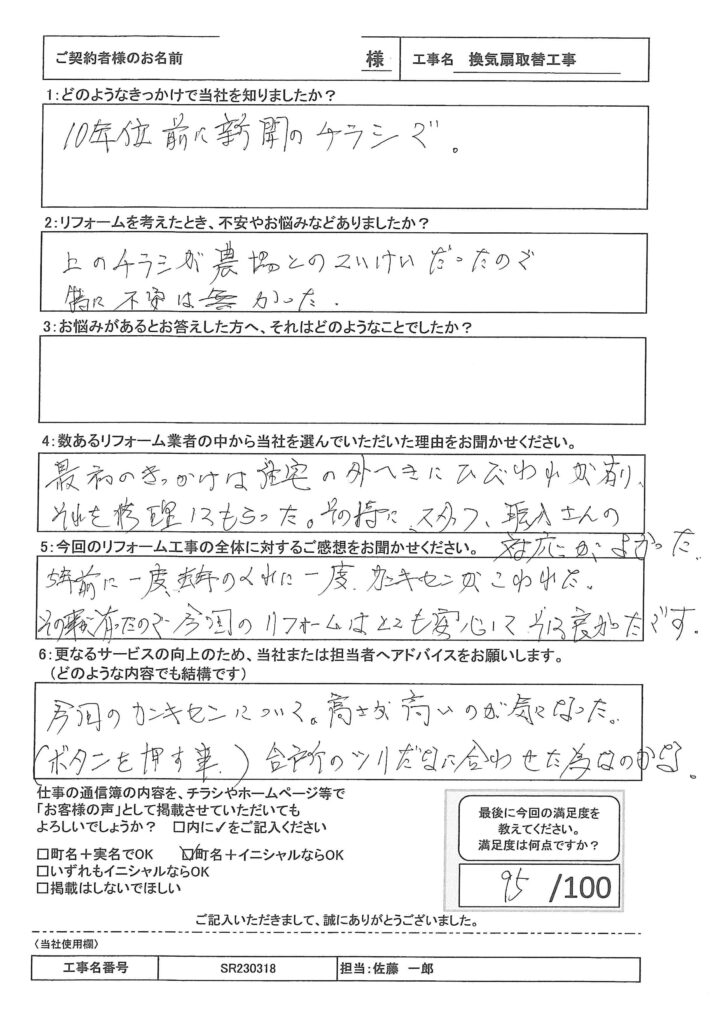 ご契約者様のお名前 様 工事名 換気扇取替工事
1:どのようなきっかけで当社を知りましたか？
10年位前に新聞のチラシで。
2:リフォームを考えたとき、不安やお悩みなどありましたか？
上のチラシが農場とのていけいだったので
特に不安は無かった.
3:お悩みがあるとお答えした方へ、それはどのようなことでしたか？
4:数あるリフォーム業者の中から当社を選んでいただいた理由をお聞かせください。
最初のきっかけは住宅の外へきにひびわれが有り、
それを修理してもらった。その時に、スタッフ、職人さんの
対応にがよかった.
5:今回のリフォーム工事の全体に対するご感想をお聞かせください。
5年前に一度、去年のくれに一度、カンキセンがこわれた。
その事が有ったので今回のリフォームはとても安心して 良かったです.
6:更なるサービスの向上のため、当社または担当者へアドバイスをお願いします。
（どのような内容でも結構です）
今回のカンキセンについて。高さが高いのが気になった。
(ボタンを押す事.) 台所のツリだなに合わせた為なのかな。
仕事の通信簿の内容を、チラシやホームページ等で
「お客様の声」として掲載させていただいても
よろしいでしょうか？ □内に✓をご記入ください
□町名＋実名でOK ☑町名＋イニシャルならOK
□いずれもイニシャルならOK
□掲載はしないでほしい
最後に今回の満足度を
教えてください。
満足度は何点ですか？
95 /100
ご記入いただきまして、誠にありがとうございました。
〈当社使用欄〉
工事名番号 SR230318 担当:佐藤 一郎